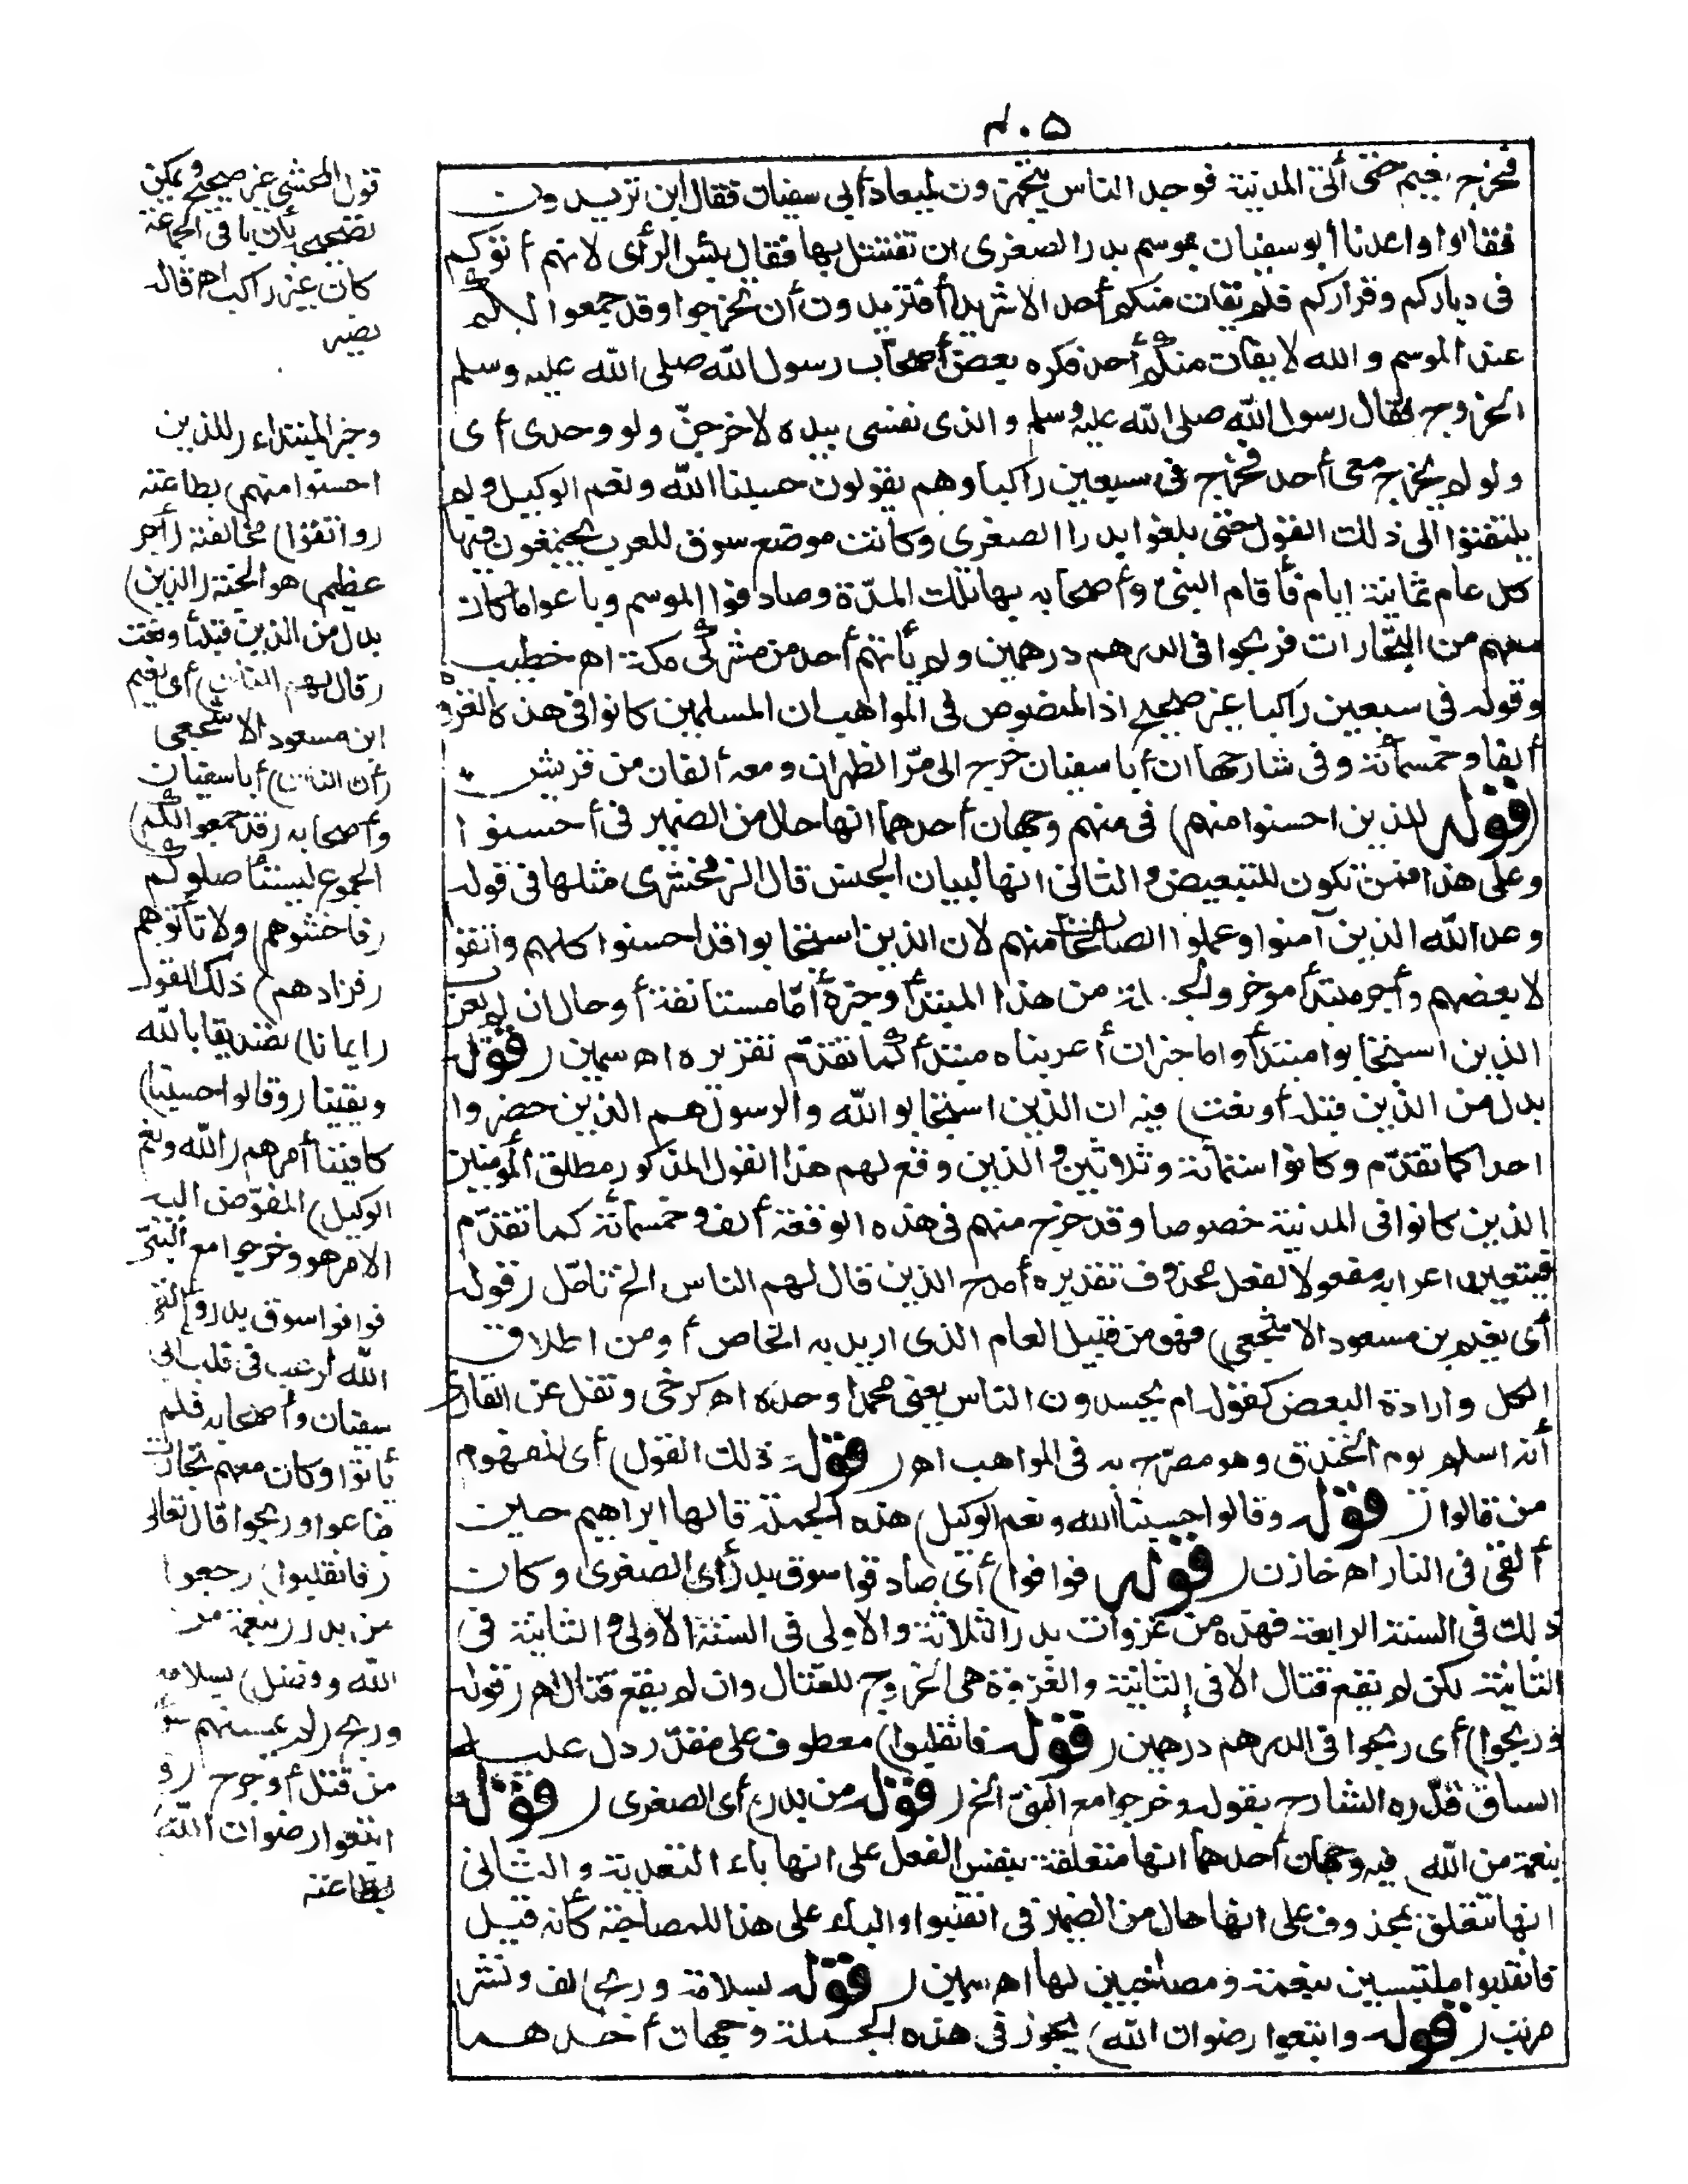 ٤٠٥
فخرج نعيم حتى أتى المدينة فوجد الناس يتجهزون لميعاد أبي سفيان فقال أين تريدون
فقالوا واعدنا أبو سفيان بموسم بدر الصغرى ان نقتتل بها فقال بئس الرأى لانهم أتوكم
في دياركم وقراركم فلم يفلت منكم أحد الا شريدا أفتريدون أن تخرجوا وقد جمعوا لكم
عند الموسم والله لا يفلت منكم أحد فكره بعض أصحاب رسول الله صلى الله عليه وسلم
الخروج فقال رسول الله صلى الله عليه وسلم والذى نفسي بيده لاخرجنّ ولو وحدى أى
ولو لم يخرج معى أحد فخرج في سبعين راكبا وهم يقولون حسبنا الله ونعم الوكيل ولم
يلتفتوا الى ذلك القول حتى بلغوا بدرا الصغرى وكانت موضع سوق للعرب يجتمعون فيها
كل عام ثمانية ايام فأقام النبي وأصحابه بها تلك المدّة وصادفوا الموسم وباعوا ما كان
معهم من التجارات فربحوا في الدرهم درهمين ولم يأتهم أحد من مشركى مكة اهـ خطيب
وقوله في سبعين راكبا غير صحيح اذ المنصوص في المواهب ان المسلمين كانوا في هذه الغزوة
ألفا وخمسمائة وفى شارحها ان أبا سفيان خرج الى مرّ الظهران ومعه ألفان من قريش
(قوله للذين احسنوا منهم) في منهم وجهان أحدهما انها حال من الضمير في أحسنوا
وعلى هذا فمن تكون للتبعيض والثاني انها لبيان الجنس قال الزمخشرى مثلها في قوله
وعد الله الذين آمنوا وعملوا الصالحات منهم لان الذين استجابوا قد احسنوا كلهم واتقوا
لا بعضهم وأجر مبتدأ مؤخر والجملة من هذا المبتدأ وخبره أمّا مستأنفة أو حال ان لم يعرب
الذين استجابوا مبتدأ واما خبر ان أعربناه مبتدأ كما تقدّم تقريره اهـ سمين (قوله
بدل من الذين قبله أو نعت) فيه ان الذين استجابوا لله والرسول هم الذين حضروا
احدا كما تقدّم وكانوا ستمائة وثلاثين والذين وقع لهم هذا القول المذكور مطلق المؤمنين
الذين كانوا في المدينة خصوصا وقد خرج منهم في هذه الوقعة ألف وخمسمائة كما تقدّم
فيتعين اعرابه مفعولا لفعل محذوف تقديره أمدح الذين قال لهم الناس الخ تأمّل (قوله
أى نعيم بن مسعود الاشجعي) فهو من قبيل العام الذى اريد به الخاص أو من اطلاق
الكل وارادة البعض كقوله ام يحسدون الناس يعنى محمدا وحده اهـ كرخى ونقل عن القارى
أنه اسلم يوم الخندق وهو مصرّح به في المواهب اهـ (قوله ذلك القول) أى المفهوم
من قالوا (قوله وقالوا حسبنا الله ونعم الوكيل) هذه الجملة قالها ابراهيم حين
ألقى في النار اهـ خازن (قوله فوافوا) أى صادفوا سوق بدر أى الصغرى وكان
ذلك في السنة الرابعة فهذه من غزوات بدر الثلاثة والاولى في السنة الاولى والثانية في
الثانية لكن لم يقع قتال الا في الثانية والغزوة هى الخروج للقتال وان لم يقع قتال اهـ (قوله
وربحوا) أى ربحوا في الدرهم درهمين (قوله فانقلبوا) معطوف على مقدّر دل عليه
السياق قدّره الشارح بقوله وخرجوا مع النبيّ الخ (قوله من بدر) أى الصغرى (قوله
بنعمة من الله) فيه وجهان أحدهما انها متعلقة بنفس الفعل على انها باء التعدية والثاني
انها تتعلق بمحذوف على انها حال من الضمير في انقلبوا والباء على هذا للمصاحبة كأنه قيل
فانقلبوا ملتبسين بنعمة ومصاحبين لها اهـ سمين (قوله بسلامة وربح) لف ونشر
مرتب (قوله واتبعوا رضوان الله) يجوز في هذه الجملة وجهان أحدهما
قول المحشى غير صحيح ويمكن
تصحيحه بأن باقى الجماعة
كان غير راكب اهـ قاله
نصير
وخبر المبتداء (للذين
احسنوا منهم) بطاعته
(واتقوا) مخالفته (أجر
عظيم) هو الجنة (الذين)
بدل من الذين قبله أو نعت
(قال لهم الناس) أى نعيم
ابن مسعود الاشجعي
(أن الناس) أبا سفيان
وأصحابه (قد جمعوا لكم)
الجموع ليستأصلوكم
(فاخشوهم) ولا تأتوهم
(فزادهم) ذلك القول
(ايمانا) تصديقا بالله
ويقينا (وقالوا حسبنا)
كافينا أمرهم (الله ونعم
الوكيل) المفوّض اليه
الامر هو وخرجوا مع النبيّ
فوافوا سوق بدر وألقى
الله الرعب في قلب أبي
سفيان وأصحابه فلم
يأتوا وكان معهم تجارات
فباعوا وربحوا قال تعالى
(فانقلبوا) رجعوا
من بدر (بنعمة من
الله وفضل) بسلامة
وربح (لم يمسسهم سوء)
من قتل أو جرح (و
اتبعوا رضوان الله)
بطاعته